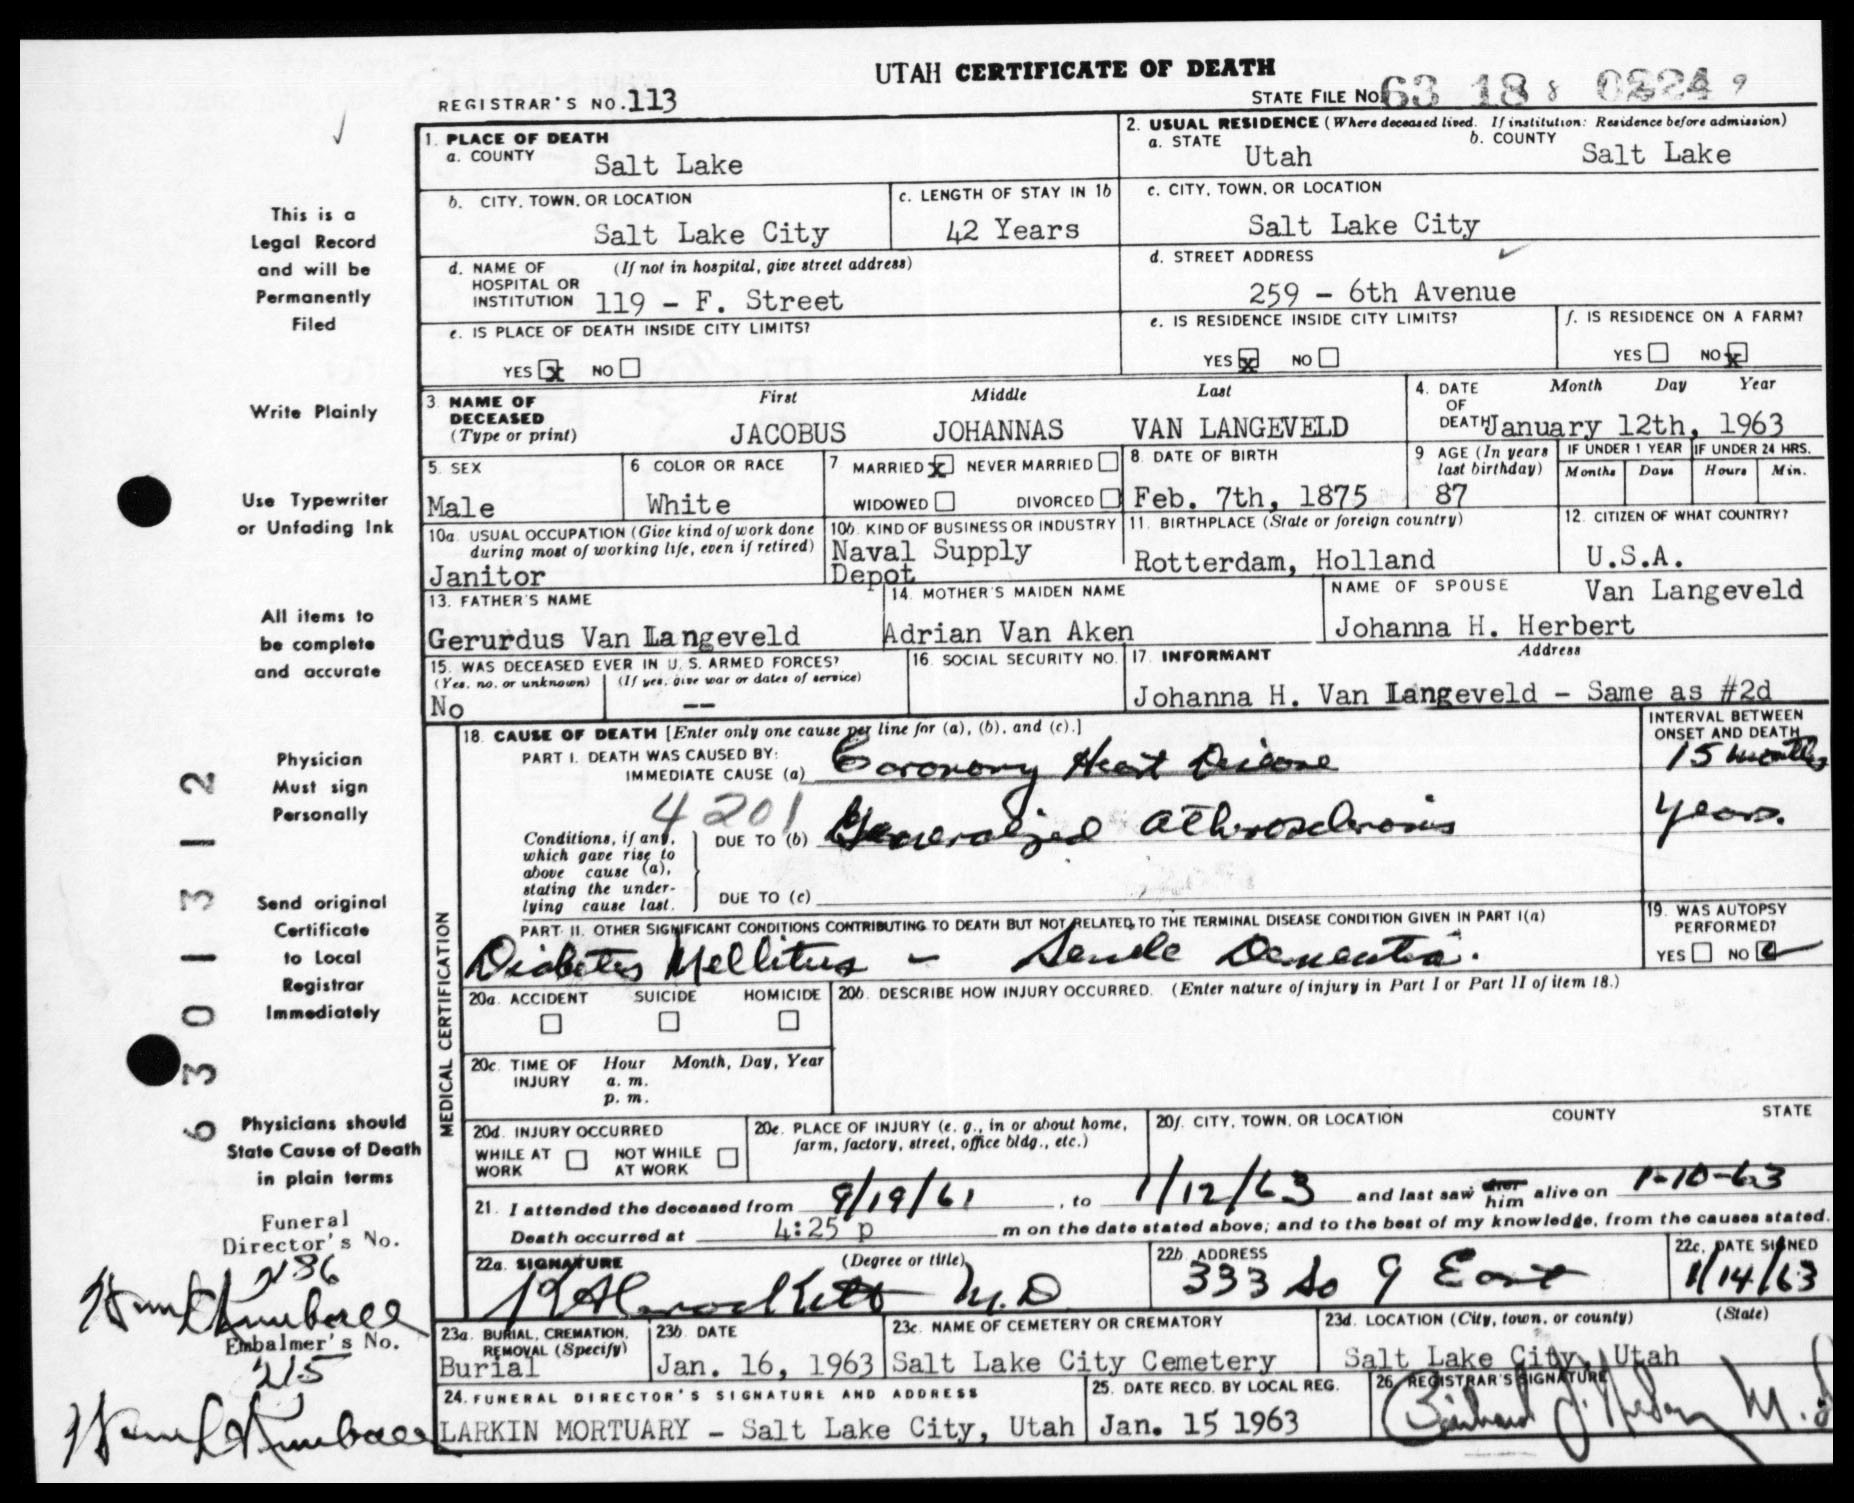 UTAH CERTIFICATE OF DEATH
REGISTRAR'S NO. 113
STATE FILE NO. 63 18
1. PLACE OF DEATH
a. COUNTY Salt Lake
2. USUAL RESIDENCE (Where deceased lived. If institution: Residence before admission)
a. STATE Utah b. COUNTY Salt Lake
b. CITY, TOWN, OR LOCATION Salt Lake City
c. LENGTH OF STAY IN 1b 42 Years
c. CITY, TOWN, OR LOCATION Salt Lake City
d. NAME OF HOSPITAL OR INSTITUTION (If not in hospital, give street address) 119 - F. Street
d. STREET ADDRESS 259 - 6th Avenue
e. IS PLACE OF DEATH INSIDE CITY LIMITS? YES x NO
e. IS RESIDENCE INSIDE CITY LIMITS? YES x NO
f. IS RESIDENCE ON A FARM? YES NO x
3. NAME OF DECEASED (Type or print) First Middle Last
JACOBUS JOHANNAS VAN LANGEVELD
4. DATE OF DEATH Month Day Year
January 12th, 1963
5. SEX Male
6 COLOR OR RACE White
7 MARRIED x NEVER MARRIED
WIDOWED DIVORCED
8. DATE OF BIRTH Feb. 7th, 1875
9 AGE (In years last birthday) 87
IF UNDER 1 YEAR Months Days
IF UNDER 24 HRS. Hours Min.
10a. USUAL OCCUPATION (Give kind of work done during most of working life, even if retired) Janitor
10b. KIND OF BUSINESS OR INDUSTRY Naval Supply Depot
11. BIRTHPLACE (State or foreign country) Rotterdam, Holland
12. CITIZEN OF WHAT COUNTRY? U.S.A.
13. FATHER'S NAME Gerurdus Van Langeveld
14. MOTHER'S MAIDEN NAME Adrian Van Aken
NAME OF SPOUSE Van Langeveld
Johanna H. Herbert
15. WAS DECEASED EVER IN U. S. ARMED FORCES?
(Yes, no, or unknown) (If yes, give war or dates of service)
No --
16. SOCIAL SECURITY NO.
17. INFORMANT Address
Johanna H. Van Langeveld - Same as #2d
MEDICAL CERTIFICATION
18. CAUSE OF DEATH [Enter only one cause per line for (a), (b), and (c).]
INTERVAL BETWEEN ONSET AND DEATH
PART I. DEATH WAS CAUSED BY:
IMMEDIATE CAUSE (a) Coronary Heart Disease 15 months
4201
Conditions, if any, which gave rise to above cause (a), stating the underlying cause last.
DUE TO (b) Generalized Atherosclerosis Years.
DUE TO (c)
PART II. OTHER SIGNIFICANT CONDITIONS CONTRIBUTING TO DEATH BUT NOT RELATED TO THE TERMINAL DISEASE CONDITION GIVEN IN PART I(a)
Diabetes Mellitus - Senile Dementia.
19. WAS AUTOPSY PERFORMED? YES NO
20a. ACCIDENT SUICIDE HOMICIDE
20b. DESCRIBE HOW INJURY OCCURRED. (Enter nature of injury in Part I or Part II of item 18.)
20c. TIME OF INJURY Hour Month, Day, Year
a. m.
p. m.
20d. INJURY OCCURRED
WHILE AT WORK NOT WHILE AT WORK
20e. PLACE OF INJURY (e. g., in or about home, farm, factory, street, office bldg., etc.)
20f. CITY, TOWN, OR LOCATION COUNTY STATE
21. I attended the deceased from 9/19/61, to 1/12/63 and last saw her him alive on 1-10-63
Death occurred at 4:25 p m on the date stated above; and to the best of my knowledge, from the causes stated.
22a. SIGNATURE (Degree or title)
M.D
22b. ADDRESS 333 So 9 East
22c. DATE SIGNED 1/14/63
23a. BURIAL, CREMATION, REMOVAL (Specify) Burial
23b. DATE Jan. 16, 1963
23c. NAME OF CEMETERY OR CREMATORY Salt Lake City Cemetery
23d. LOCATION (City, town, or county) (State)
Salt Lake City, Utah
24. FUNERAL DIRECTOR'S SIGNATURE AND ADDRESS
LARKIN MORTUARY - Salt Lake City, Utah
25. DATE RECD. BY LOCAL REG. Jan. 15 1963
26 REGISTRAR'S SIGNATURE
This is a
Legal Record
and will be
Permanently
Filed
Write Plainly
Use Typewriter
or Unfading Ink
All items to
be complete
and accurate
Physician
Must sign
Personally
Send original
Certificate
to Local
Registrar
Immediately
Physicians should
State Cause of Death
in plain terms
Funeral
Director's No.
2186
Embalmer's No.
215
6 3 0 1 3 1 2